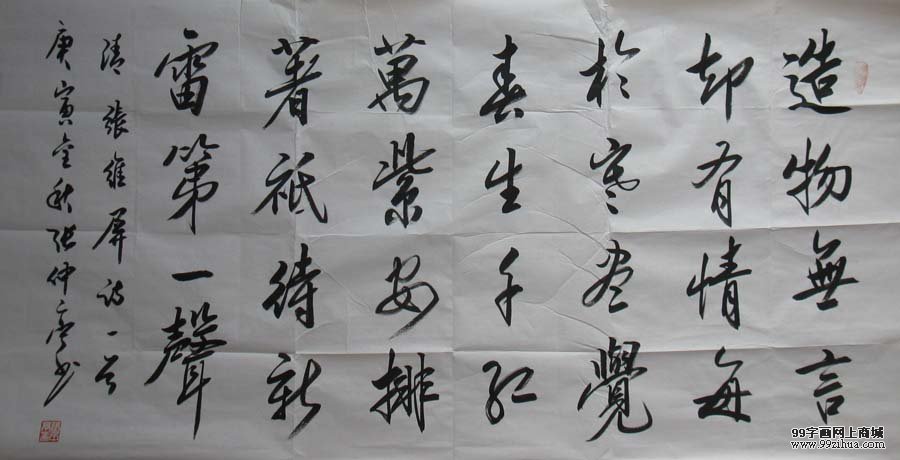 造物無言
却有情每
於寒盡覺
春生千紅
萬紫安排
著祗待新
雷第一聲
清張維屏詩一首
庚寅金秋張仲亭書
99字画网上商城
www.99zihua.com